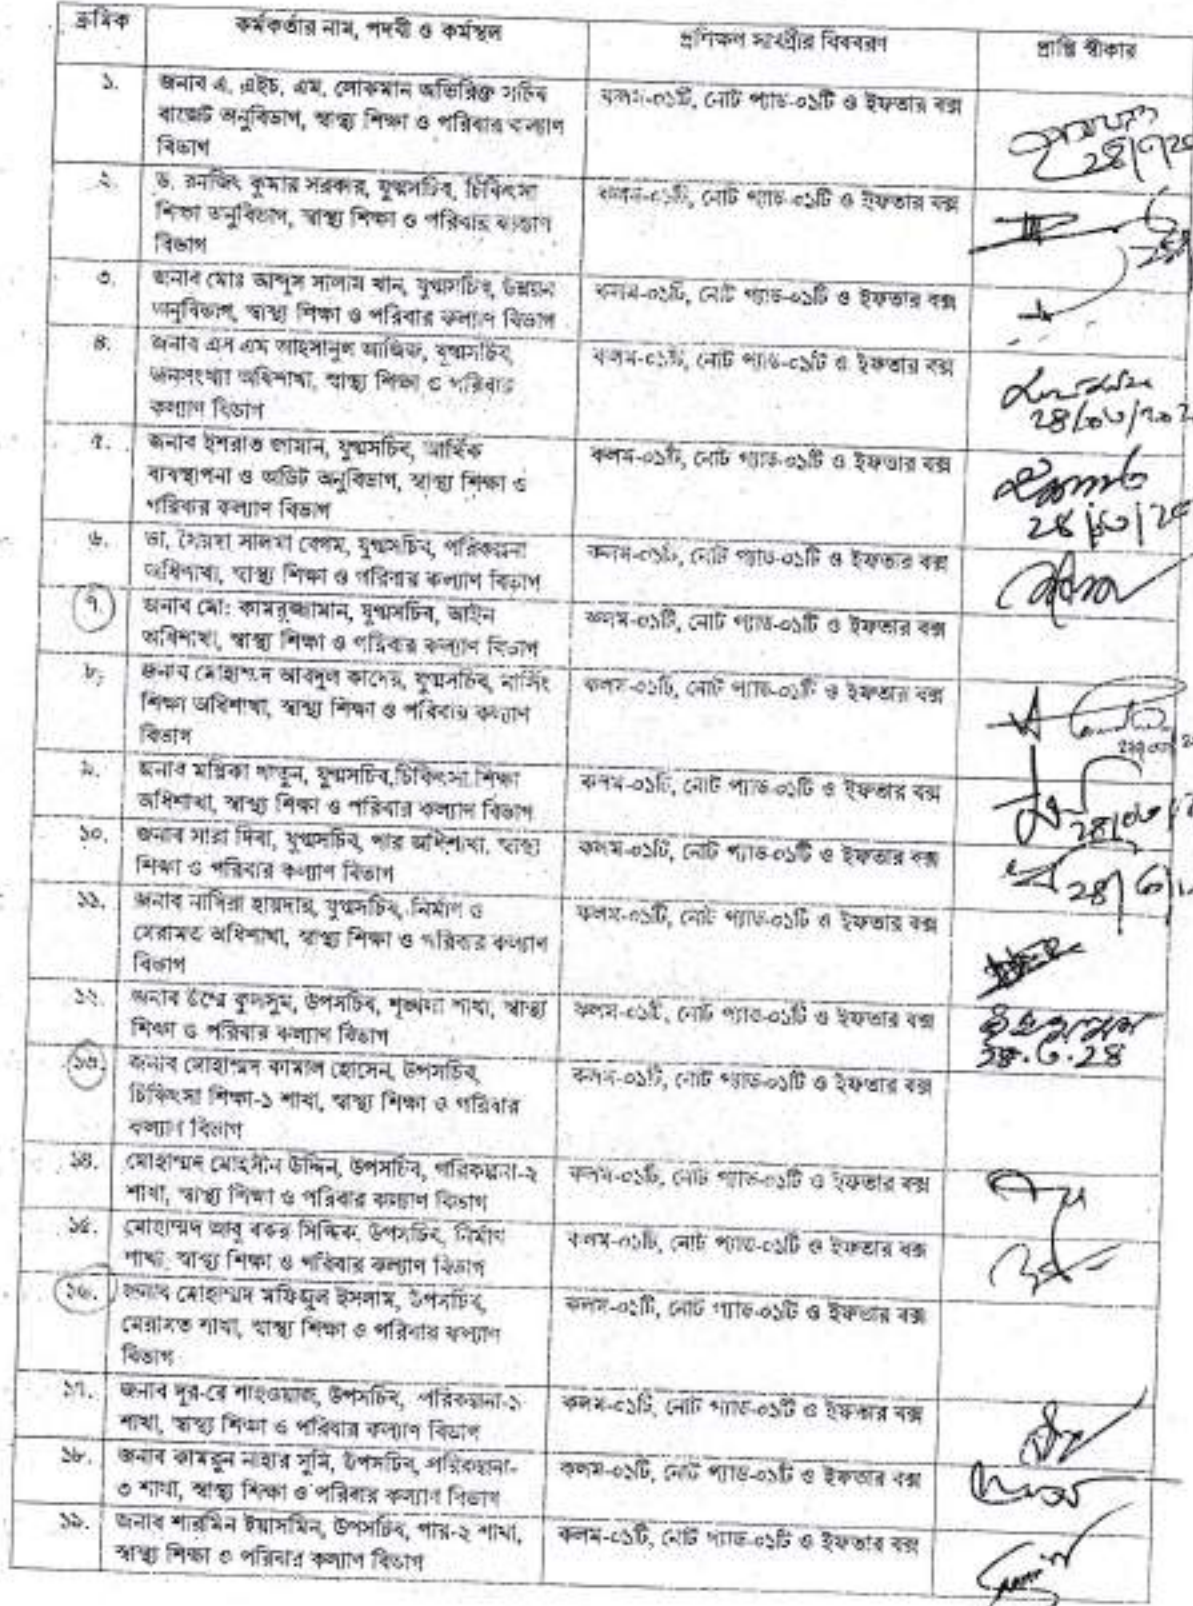 ক্রমিক
কর্মকর্তার নাম, পদবী ও কর্মস্থল
প্রশিক্ষণ সামগ্রীর বিববরণ
প্রাপ্তি স্বীকার
১.
জনাব এ. এইচ. এম. লোকমান অতিরিক্ত সচিব
বাজেট অনুবিভাগ, স্বাস্থ্য শিক্ষা ও পরিবার কল্যাণ
বিভাগ
কলম-০১টি, নোট প্যাড-০১টি ও ইফতার বক্স
২.
ড. রনজিৎ কুমার সরকার, যুগ্মসচিব, চিকিৎসা
শিক্ষা অনুবিভাগ, স্বাস্থ্য শিক্ষা ও পরিবার কল্যাণ
বিভাগ
কলম-০১টি, নোট প্যাড-০১টি ও ইফতার বক্স
৩.
জনাব মোঃ আব্দুস সালাম খান, যুগ্মসচিব, উন্নয়ন
অনুবিভাগ, স্বাস্থ্য শিক্ষা ও পরিবার কল্যাণ বিভাগ
কলম-০১টি, নোট প্যাড-০১টি ও ইফতার বক্স
৪.
জনাব এস এম আহসানুল আজিজ, যুগ্মসচিব,
জনসংখ্যা অধিশাখা, স্বাস্থ্য শিক্ষা ও পরিবার
কল্যাণ বিভাগ
কলম-০১টি, নোট প্যাড-০১টি ও ইফতার বক্স
৫.
জনাব ইশরাত জামান, যুগ্মসচিব, আর্থিক
ব্যবস্থাপনা ও অডিট অনুবিভাগ, স্বাস্থ্য শিক্ষা ও
পরিবার কল্যাণ বিভাগ
কলম-০১টি, নোট প্যাড-০১টি ও ইফতার বক্স
৬.
ডা. সৈয়দা সালমা বেগম, যুগ্মসচিব, পরিকল্পনা
অধিশাখা, স্বাস্থ্য শিক্ষা ও পরিবার কল্যাণ বিভাগ
কলম-০১টি, নোট প্যাড-০১টি ও ইফতার বক্স
৭.
জনাব মো: কামরুজ্জামান, যুগ্মসচিব, আইন
অধিশাখা, স্বাস্থ্য শিক্ষা ও পরিবার কল্যাণ বিভাগ
কলম-০১টি, নোট প্যাড-০১টি ও ইফতার বক্স
৮.
জনাব মোহাম্মদ আবদুল কাদের, যুগ্মসচিব, নার্সিং
শিক্ষা অধিশাখা, স্বাস্থ্য শিক্ষা ও পরিবার কল্যাণ
বিভাগ
কলম-০১টি, নোট প্যাড-০১টি ও ইফতার বক্স
৯.
জনাব মল্লিকা খাতুন, যুগ্মসচিব,চিকিৎসা শিক্ষা
অধিশাখা, স্বাস্থ্য শিক্ষা ও পরিবার কল্যাণ বিভাগ
কলম-০১টি, নোট প্যাড-০১টি ও ইফতার বক্স
১০.
জনাব সারা দিবা, যুগ্মসচিব, পার অধিশাখা, স্বাস্থ্য
শিক্ষা ও পরিবার কল্যাণ বিভাগ
কলম-০১টি, নোট প্যাড-০১টি ও ইফতার বক্স
১১.
জনাব নাদিরা হায়দার, যুগ্মসচিব, নির্মাণ ও
মেরামত অধিশাখা, স্বাস্থ্য শিক্ষা ও পরিবার কল্যাণ
বিভাগ
কলম-০১টি, নোট প্যাড-০১টি ও ইফতার বক্স
১২.
জনাব উম্মে কুলসুম, উপসচিব, শৃঙ্খলা শাখা, স্বাস্থ্য
শিক্ষা ও পরিবার কল্যাণ বিভাগ
কলম-০১টি, নোট প্যাড-০১টি ও ইফতার বক্স
২৪.৩.২৪
১৩.
জনাব মোহাম্মদ কামাল হোসেন, উপসচিব,
চিকিৎসা শিক্ষা-১ শাখা, স্বাস্থ্য শিক্ষা ও পরিবার
কল্যাণ বিভাগ
কলম-০১টি, নোট প্যাড-০১টি ও ইফতার বক্স
১৪.
মোহাম্মদ মোহসীন উদ্দিন, উপসচিব, পরিকল্পনা-২
শাখা, স্বাস্থ্য শিক্ষা ও পরিবার কল্যাণ বিভাগ
কলম-০১টি, নোট প্যাড-০১টি ও ইফতার বক্স
১৫.
মোহাম্মদ আবু বকর সিদ্দিক, উপসচিব, নির্মাণ
শাখা, স্বাস্থ্য শিক্ষা ও পরিবার কল্যাণ বিভাগ
কলম-০১টি, নোট প্যাড-০১টি ও ইফতার বক্স
১৬.
জনাব মোহাম্মদ মফিদুল ইসলাম, উপসচিব,
মেরামত শাখা, স্বাস্থ্য শিক্ষা ও পরিবার কল্যাণ
বিভাগ
কলম-০১টি, নোট প্যাড-০১টি ও ইফতার বক্স
১৭.
জনাব দুর-রে শাহওয়াজ, উপসচিব, পরিকল্পনা-১
শাখা, স্বাস্থ্য শিক্ষা ও পরিবার কল্যাণ বিভাগ
কলম-০১টি, নোট প্যাড-০১টি ও ইফতার বক্স
১৮.
জনাব কামরুন নাহার সুমি, উপসচিব, পরিকল্পনা-
৩ শাখা, স্বাস্থ্য শিক্ষা ও পরিবার কল্যাণ বিভাগ
কলম-০১টি, নোট প্যাড-০১টি ও ইফতার বক্স
১৯.
জনাব শারমিন ইয়াসমিন, উপসচিব, পার-২ শাখা,
স্বাস্থ্য শিক্ষা ও পরিবার কল্যাণ বিভাগ
কলম-০১টি, নোট প্যাড-০১টি ও ইফতার বক্স